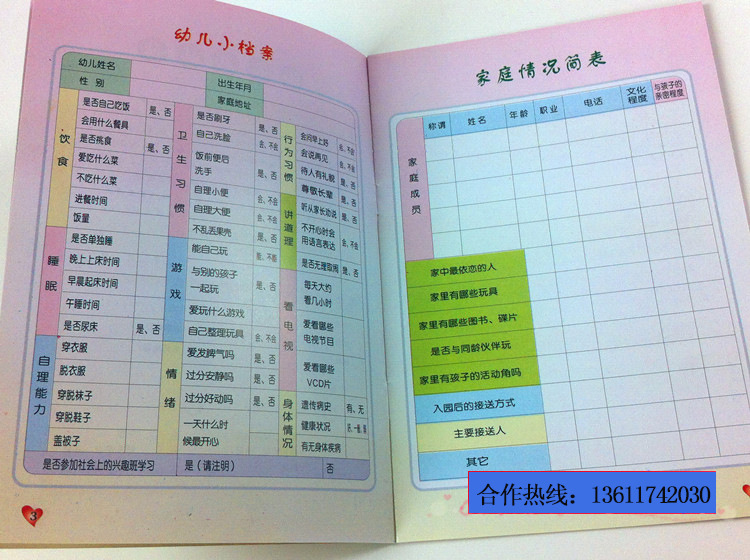 幼儿小档案
幼儿姓名
出生年月
性别
家庭地址
饮食
是否自己吃饭
是、否
会用什么餐具
是否挑食
是、否
爱吃什么菜
不吃什么菜
进餐时间
饭量
睡眠
是否单独睡
晚上上床时间
早晨起床时间
午睡时间
是否尿床
是、否
自理能力
穿衣服
脱衣服
穿脱袜子
穿脱鞋子
盖被子
卫生习惯
是否刷牙
是、否
自己洗脸
会、不会
饭前便后
洗手
是、否
自理小便
会、不会
自理大便
会、不会
不乱丢果壳
是、否
游戏
能自己玩
能、不能
与别的孩子
一起玩
是、否
爱玩什么游戏
自己整理玩具
会、不会
情绪
爱发脾气吗
是、否
过分安静吗
是、否
过分好动吗
是、否
一天什么时
候最开心
行为习惯
会问早上好
会、不会
会说再见
会、不会
待人有礼貌
是、否
尊敬长辈
是、否
讲道理
听从家长劝说
是、否
不开心时会
用语言表达
会、不会
是否无理取闹
是、否
看电视
每天大约
看几小时
爱看哪些
电视节目
爱看哪些
VCD片
身体情况
遗传病史
有、无
健康状况
有无身体疾病
是否参加社会上的兴趣班学习
是（请注明）
否
3
家庭情况简表
家庭成员
称谓
姓名
年龄
职业
电话
文化
程度
与孩子的
亲密程度
家中最依恋的人
家里有哪些玩具
家里有哪些图书、碟片
是否与同龄伙伴玩
家里有孩子的活动角吗
入园后的接送方式
主要接送人
其它
合作热线：13611742030